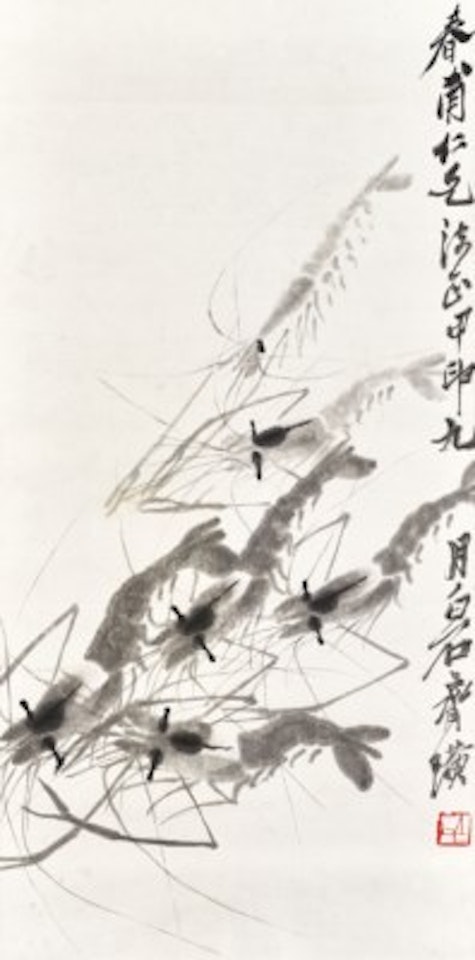 春甫仁兄法正九月白石齊璜